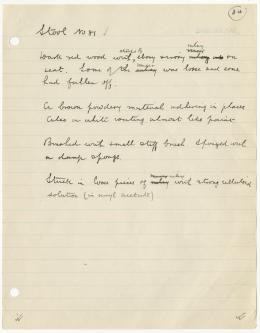 Stool No 81
Dark red wood with ebony & ivory inlay on
seat. Some of the inlay was loose and some
had fallen off.
A brown powdery material adhering in places
Also a white coating almost like paint
Brushed with small stiff brush Sponged with
a damp sponge.
Stuck in loose pieces of inlay with strong celluloid
solution (in amyl acetate)